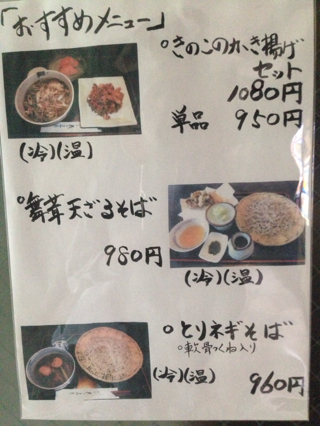 「おすすめメニュー」
°きのこのかき揚げ
セット
1080円
単品 950円
(冷)(温)
°舞茸天ざるそば
980円
(冷)(温)
°とりネギそば
°軟骨つくね入り
(冷)(温)
960円